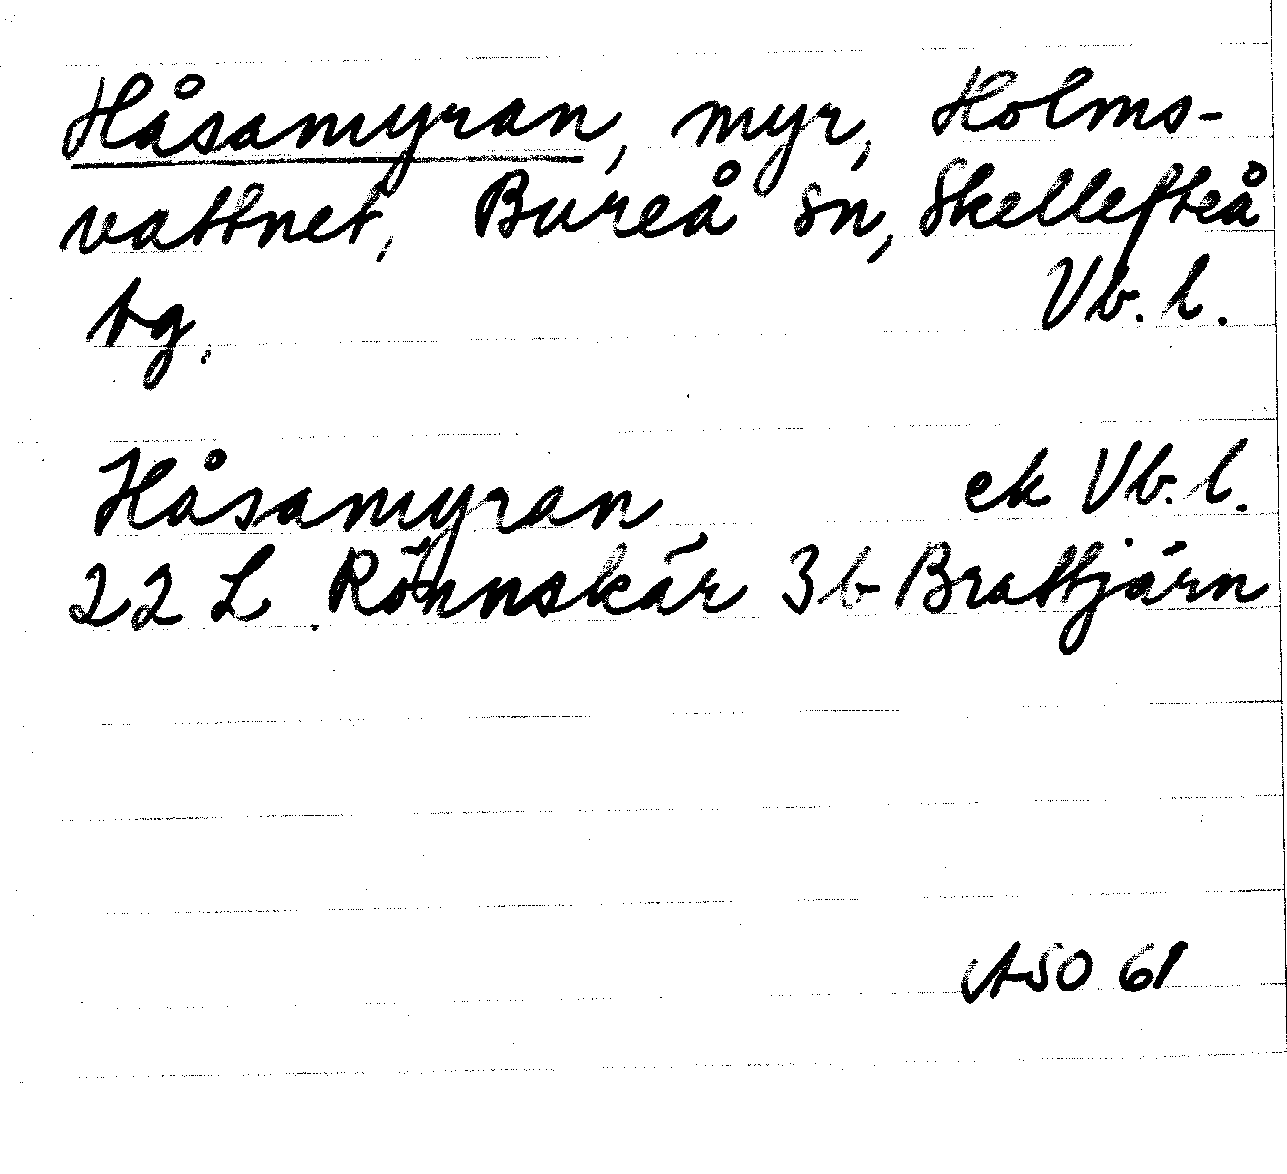 Håsamyran, myr, Holms-
vattnet, Bureå sn, Skellefteå
tg. Vb. l.
Håsamyran ek Vb. l.
22 L Rönnskär 3b Brattjärn
ASO 61